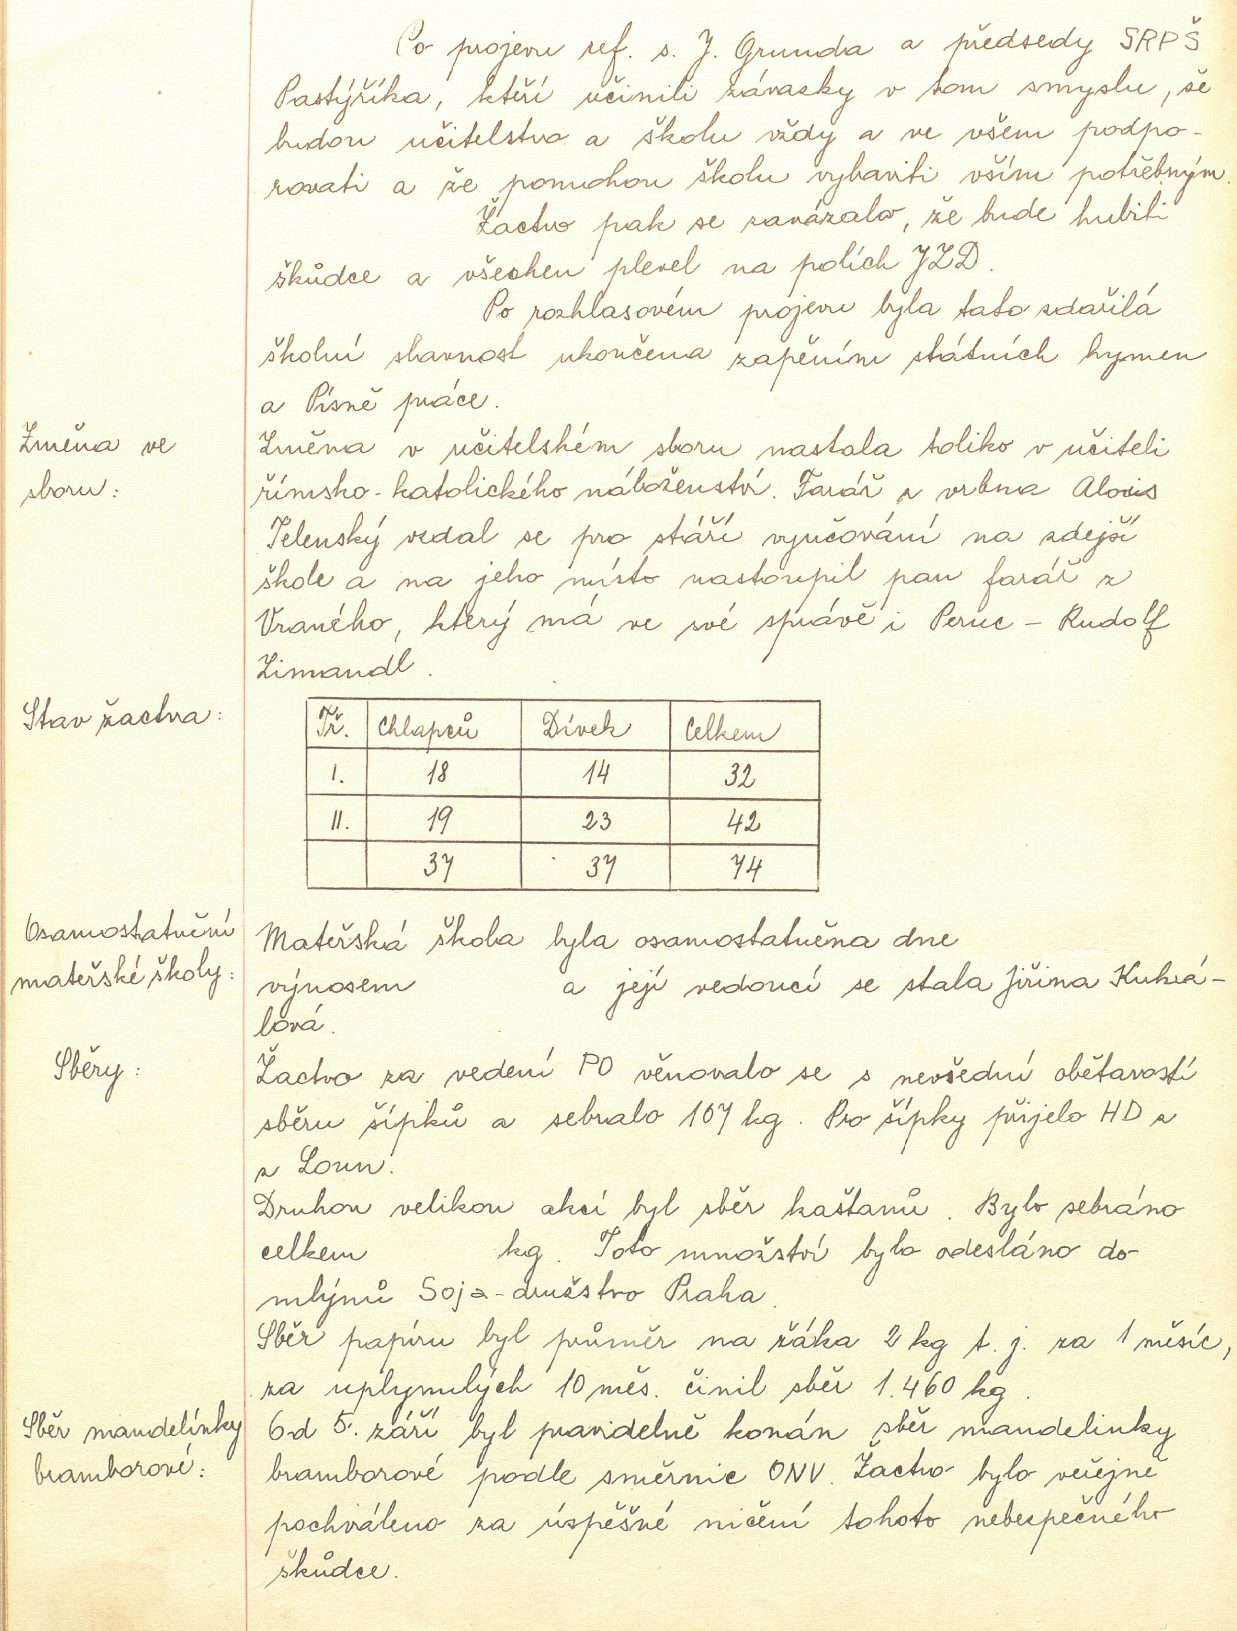 Po projevu ref. s. J. Grunda a předsedy SRPŠ
Pastýříka, kteří učinili závazky v tom smyslu, še
budou učitelstvo a školu vždy a ve všem podpo-
rovati a že pomohou školu vybaviti vším potřebným.
Žactvo pak se zavázalo, že bude hubiti
škůdce a všechen plevel na polích JZD.
Po rozhlasovém projevu byla tato zdařilá
školní slavnost ukončena zapěním státních hymen
a Písně práce.
Změna ve
sboru:
Změna v učitelském sboru nastala toliko v učiteli
římsko-katolického náboženství. Farář z vrbna Alois
Jelenský vzdal se pro stáří vyučování na zdejší
škole a na jeho místo nastoupil pan farář z
Vraného, který má ve své správě i Peruc - Rudolf
Zimandl.
Stav žactva:
Tř. Chlapců Dívek Celkem
I. 18 14 32
II. 19 23 42
37 37 74
Osamostatnění
mateřské školy:
Mateřská škola byla osamostatněna dne
výnosem a její vedoucí se stala Jiřina Kukrá-
lová.
Sběry:
Žactvo za vedení PO věnovalo se s nevšední obětavostí
sběru šípků a sebralo 107 kg. Pro šípky přijelo HD z
z Loun.
Druhou velikou akcí byl sběr kaštanů. Bylo sebráno
celkem kg. Toto množství bylo odesláno do
mlýnů Soja-družstvo Praha.
Sběr papíru byl průměr na žáka 2 kg t. j. za 1 měsíc,
za uplynulých 10 měs. činil sběr 1.460 kg.
Sběr mandelínky
bramborové:
Od 5. září byl pravidelně konán sběr mandelinky
bramborové podle směrnic ONV. Žactvo bylo veřejně
pochváleno za úspěšné ničení tohoto nebezpečného
škůdce.